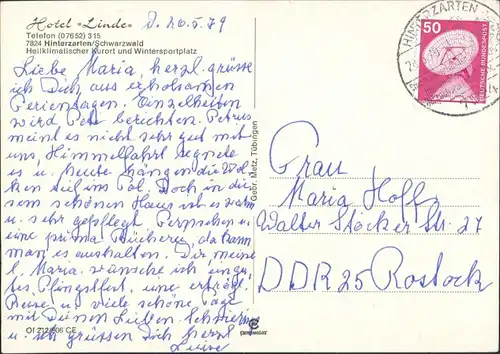 Hotel »Linde«
D. 26.5.79
Telefon (07652) 315
7824 Hinterzarten/Schwarzwald
Heilklimatischer Kurort und Wintersportplatz
Liebe Maria, herzl. grüsse
ich Dich aus erholsamen
Ferientagen. Einzelheiten
wird Pet berichten. Petrus
meint es nicht sehr gut mit
uns, Himmelfahrt regnete
es u. heute hängen die Wol-
ken tief ins Tal. Doch in die-
sem schönen Haus ist es warm
u. sehr gepflegt. Fernsehen u.
eine prima Bücherei, da kann
man es aushalten. Dir meine
l. Maria, wünsche ich ein gu-
tes Pfingstfest, eine erfolgr.
Reise u. viele schöne Tage
mit Deinen Lieben.
u. ich grüssen Dich herzl.
Of 212/906 CE
Gebr. Metz, Tübingen
50
DEUTSCHE BUNDESPOST
HINTERZARTEN
Frau
Maria Hoff
Walter Stöcker Str. 27
DDR 25 Rostock